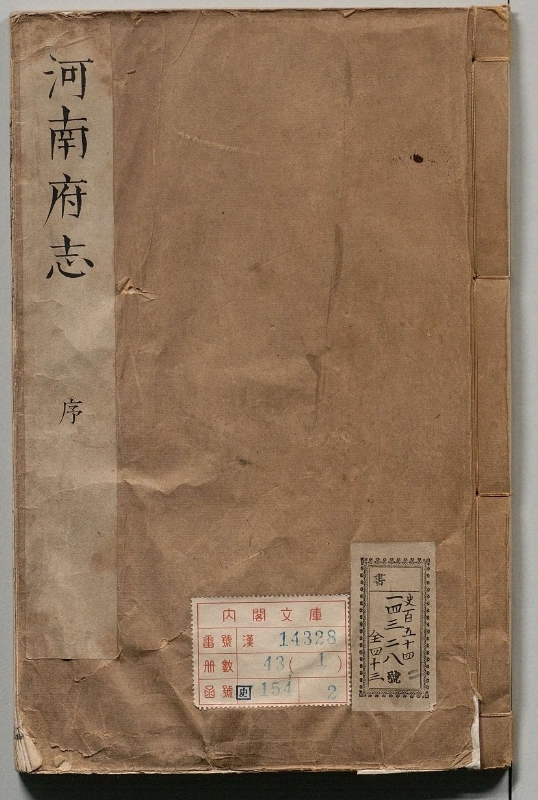 河南府志
序
内閣文庫
番號 漢 14328
冊數 43(1)
函號 史 154 2
書
史百五十四
一四三二八號
全四十三